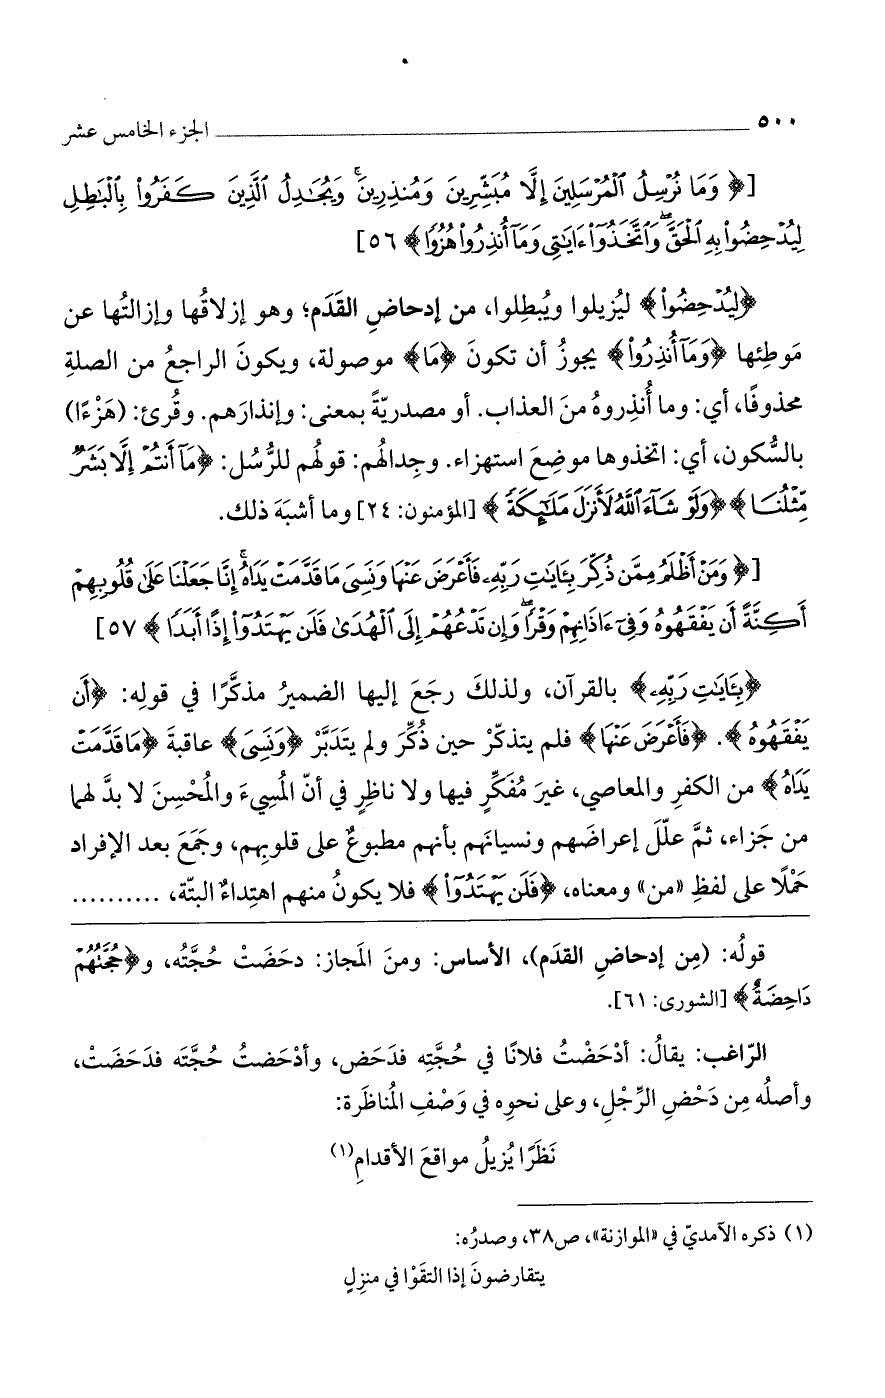 ٥٠٠ الجزء الخامس عشر
[﴿ وَمَا نُرْسِلُ ٱلْمُرْسَلِينَ إِلَّا مُبَشِّرِينَ وَمُنذِرِينَ ۚ وَيُجَٰدِلُ ٱلَّذِينَ كَفَرُوا۟ بِٱلْبَٰطِلِ
لِيُدْحِضُوا۟ بِهِ ٱلْحَقَّ ۖ وَٱتَّخَذُوٓا۟ ءَايَٰتِى وَمَآ أُنذِرُوا۟ هُزُوًا ﴾ ٥٦]
﴿لِيُدْحِضُوا۟﴾ ليُزيلوا ويُبطِلوا، من إدحاضِ القَدَم؛ وهو إزلاقُها وإزالتُها عن
مَوطِئها ﴿وَمَآ أُنذِرُوا۟﴾ يجوزُ أن تكونَ ﴿مَا﴾ موصولة، ويكونَ الراجعُ من الصلةِ
محذوفًا، أي: وما أُنذِروهُ منَ العذاب. أو مصدريّةً بمعنى: وإنذارَهم. وقُرئ: (هَزْءًا)
بالسُّكون، أي: اتخذوها موضِعَ استهزاء. وجِدالُهم: قولُهم للرُّسُل: ﴿مَآ أَنتُمْ إِلَّا بَشَرٌ
مِّثْلُنَا ﴾ ﴿وَلَوْ شَآءَ ٱللَّهُ لَأَنزَلَ مَلَٰٓئِكَةً ﴾ [المؤمنون: ٢٤] وما أشبَهَ ذلك.
[﴿ وَمَنْ أَظْلَمُ مِمَّن ذُكِّرَ بِـَٔايَٰتِ رَبِّهِۦ فَأَعْرَضَ عَنْهَا وَنَسِىَ مَا قَدَّمَتْ يَدَاهُ ۚ إِنَّا جَعَلْنَا عَلَىٰ قُلُوبِهِمْ
أَكِنَّةً أَن يَفْقَهُوهُ وَفِىٓ ءَاذَانِهِمْ وَقْرًا ۖ وَإِن تَدْعُهُمْ إِلَى ٱلْهُدَىٰ فَلَن يَهْتَدُوٓا۟ إِذًا أَبَدًا ﴾ ٥٧]
﴿بِـَٔايَٰتِ رَبِّهِۦ﴾ بالقرآن، ولذلكَ رجَعَ إليها الضميرُ مذكَّرًا في قولِه: ﴿أَن
يَفْقَهُوهُ ﴾. ﴿فَأَعْرَضَ عَنْهَا﴾ فلم يتذكرْ حين ذُكِّرَ ولم يتَدَبَّرْ ﴿وَنَسِىَ﴾ عاقبةَ ﴿مَا قَدَّمَتْ
يَدَاهُ﴾ من الكفرِ والمعاصي، غيرَ مُفَكِّرٍ فيها ولا ناظرٍ في أنّ المُسِيءَ والمُحْسِنَ لا بدَّ لهما
من جَزاء، ثمَّ علّلَ إعراضَهم ونسيانَهم بأنهم مطبوعٌ على قلوبِهم، وجمَعَ بعد الإفراد
حَمْلًا على لفظِ «من» ومعناه، ﴿فَلَن يَهْتَدُوٓا۟ ﴾ فلا يكونُ منهم اهتِداءٌ البتّة، ..........
قولُه: (مِن إدحاضِ القدَم)، الأساس: ومنَ المَجاز: دحَضَتْ حُجَّتُه، و﴿حُجَّتُهُمْ
دَاحِضَةٌ﴾ [الشورى: ١٦].
الرّاغب: يقالُ: أدْحَضْتُ فلانًا في حُجَّتِه فدَحَض، وأدْحَضتُ حُجَّتَه فدَحَضَتْ،
وأصلُه مِن دَحْضِ الرِّجْلِ، وعلى نحوِه في وَصْفِ المُناظَرة:
نَظَرًا يُزيلُ مواقعَ الأقدامِ(١)
(١) ذكره الآمديّ في «الموازنة»، ص٣٨، وصدرُه:
يتقارضونَ إذا التقَوْا في منزِلٍ